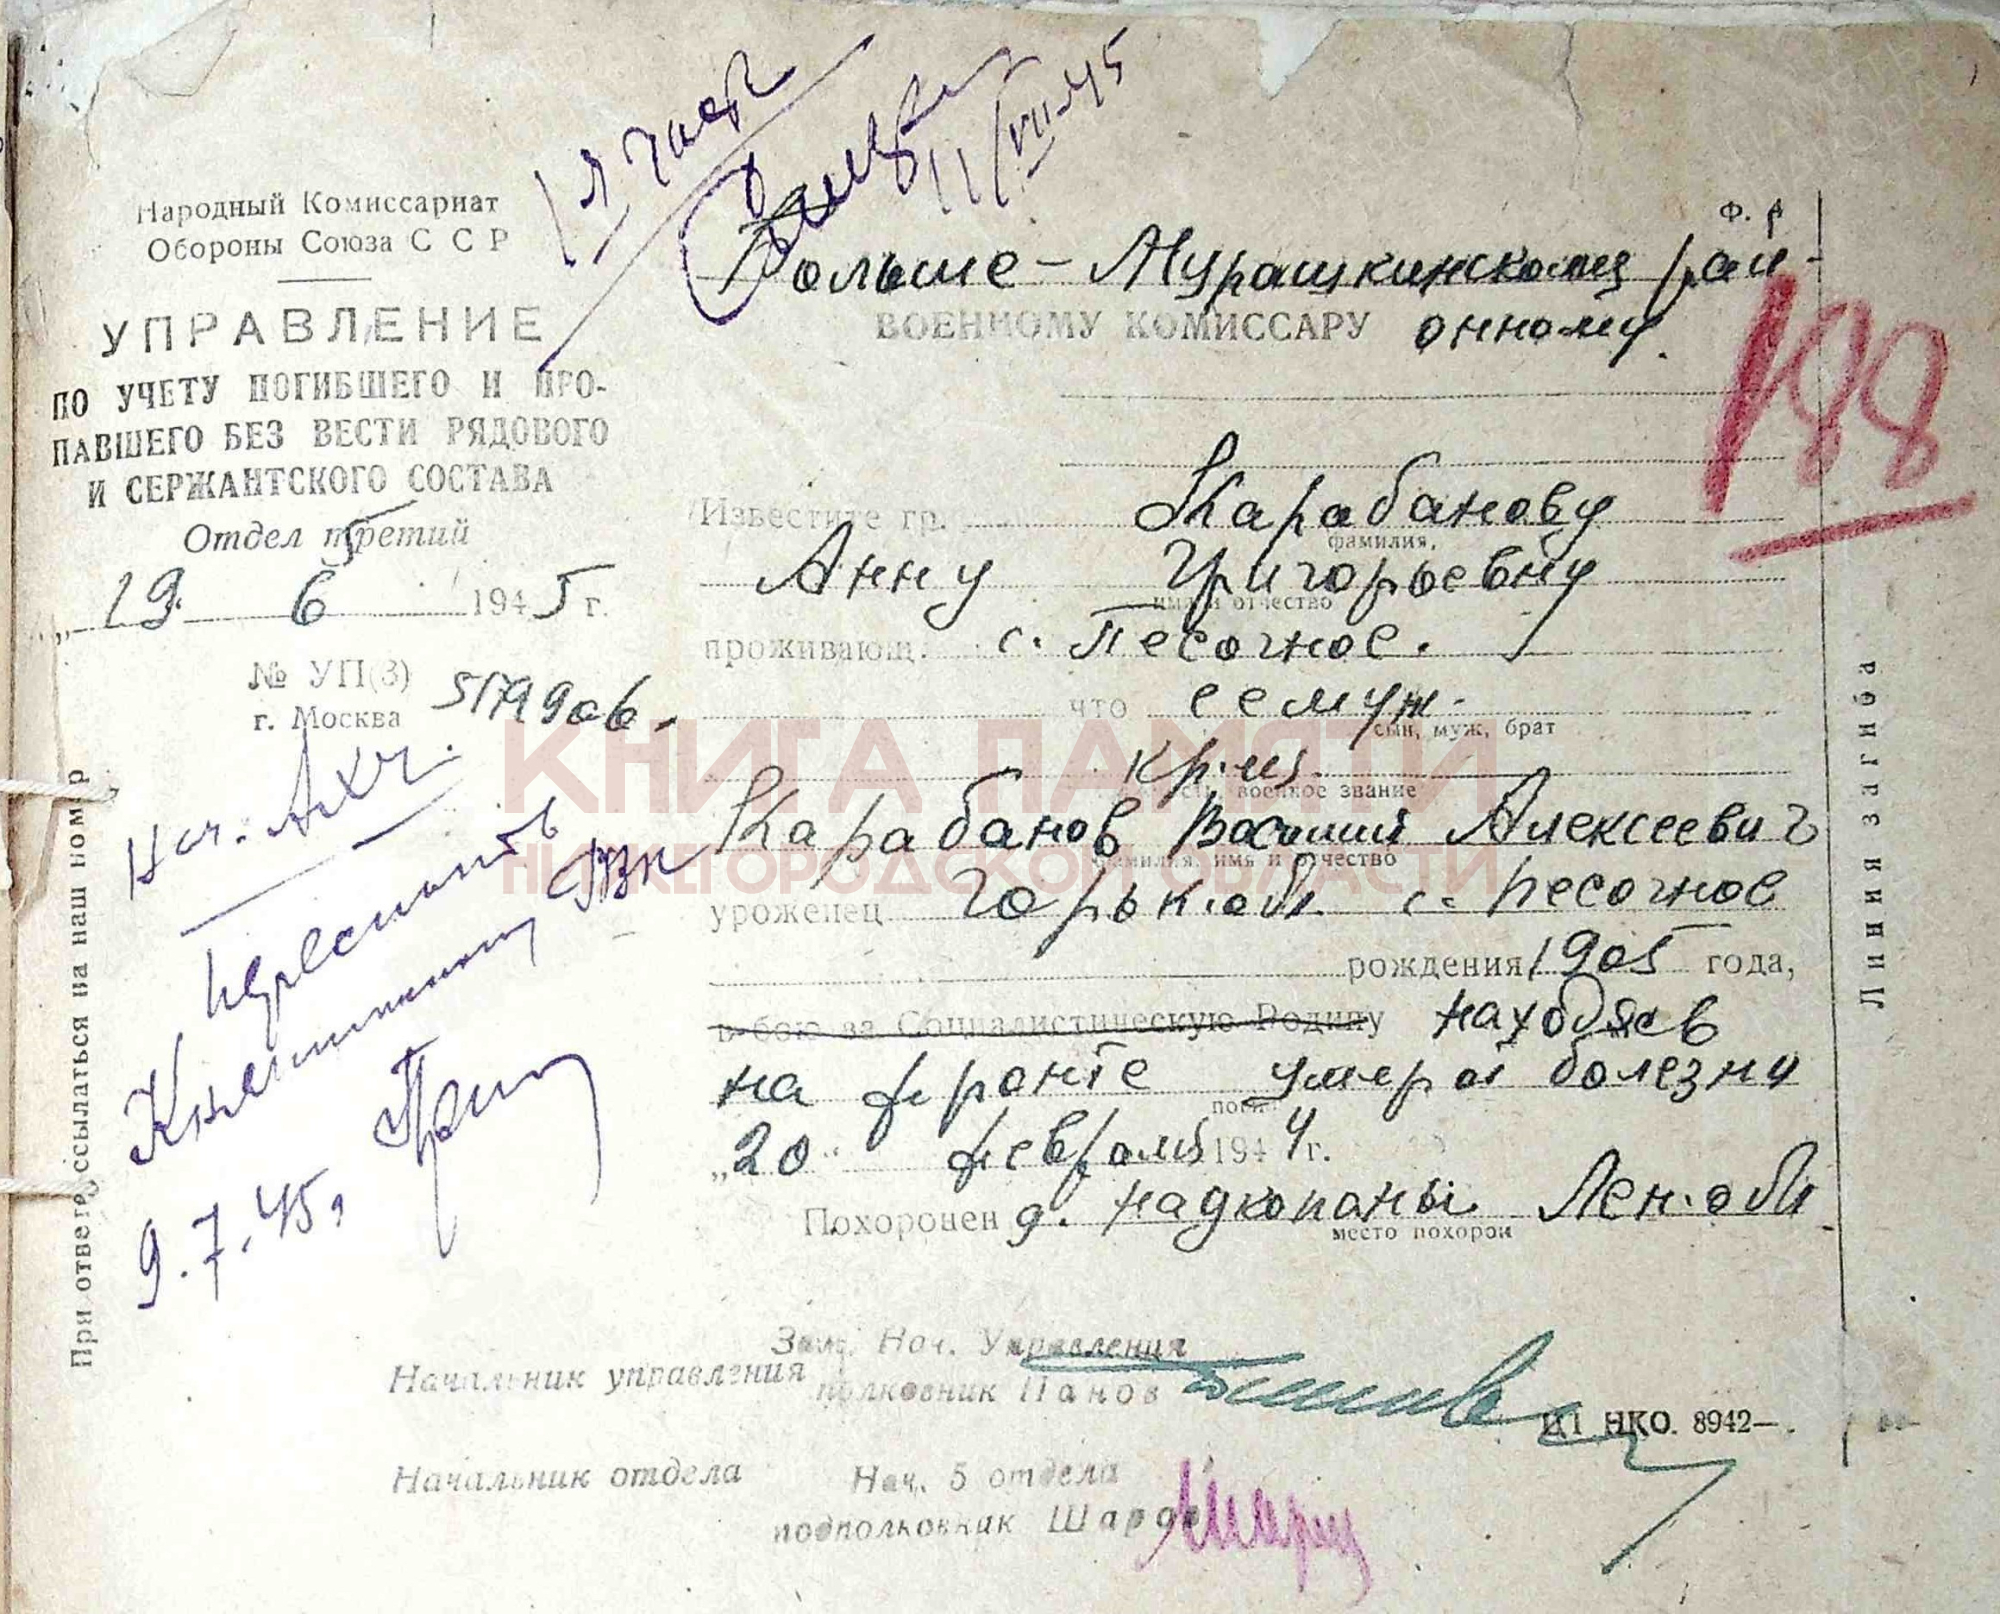 Народный Комиссариат
Обороны Союза ССР
УПРАВЛЕНИЕ
ПО УЧЕТУ ПОГИБШЕГО И ПРО-
ПАВШЕГО БЕЗ ВЕСТИ РЯДОВОГО
И СЕРЖАНТСКОГО СОСТАВА
Отдел третий 5
19. 6 1945 г.
№ УП(3)
г. Москва
Нач. АХЧ.
Переслать
Княгининскому РВК
9.7.45г
При ответе ссылаться на наш номер
11/VII-45
Ф. 4
Больше-Мурашкинскому рай-
ВОЕННОМУ КОМИССАРУ онному.
198
Известите гр. Карабанову
фамилия,
Анну Григорьевну
имя и отчество
проживающ. с. Песочное.
что ее муж.
сын, муж, брат
кр-ец
военное звание
Карабанов Василий Алексеевич
фамилия, имя и отчество
уроженец Горьк. обл. с. Песочное
рождения 1905 года,
в бою за Социалистическую Родину находясь
на фронте умер от болезни
„20" февраля 1944 г.
Похоронен д. Надкопанье Лен. обл.
место похорон
Зам. Нач. Управления
Начальник управления полковник Панов
И1 НКО. 8942
Начальник отдела Нач. 5 отдела
подполковник Шаров
Линия загиба
КНИГА ПАМЯТИ
НИЖЕГОРОДСКОЙ ОБЛАСТИ